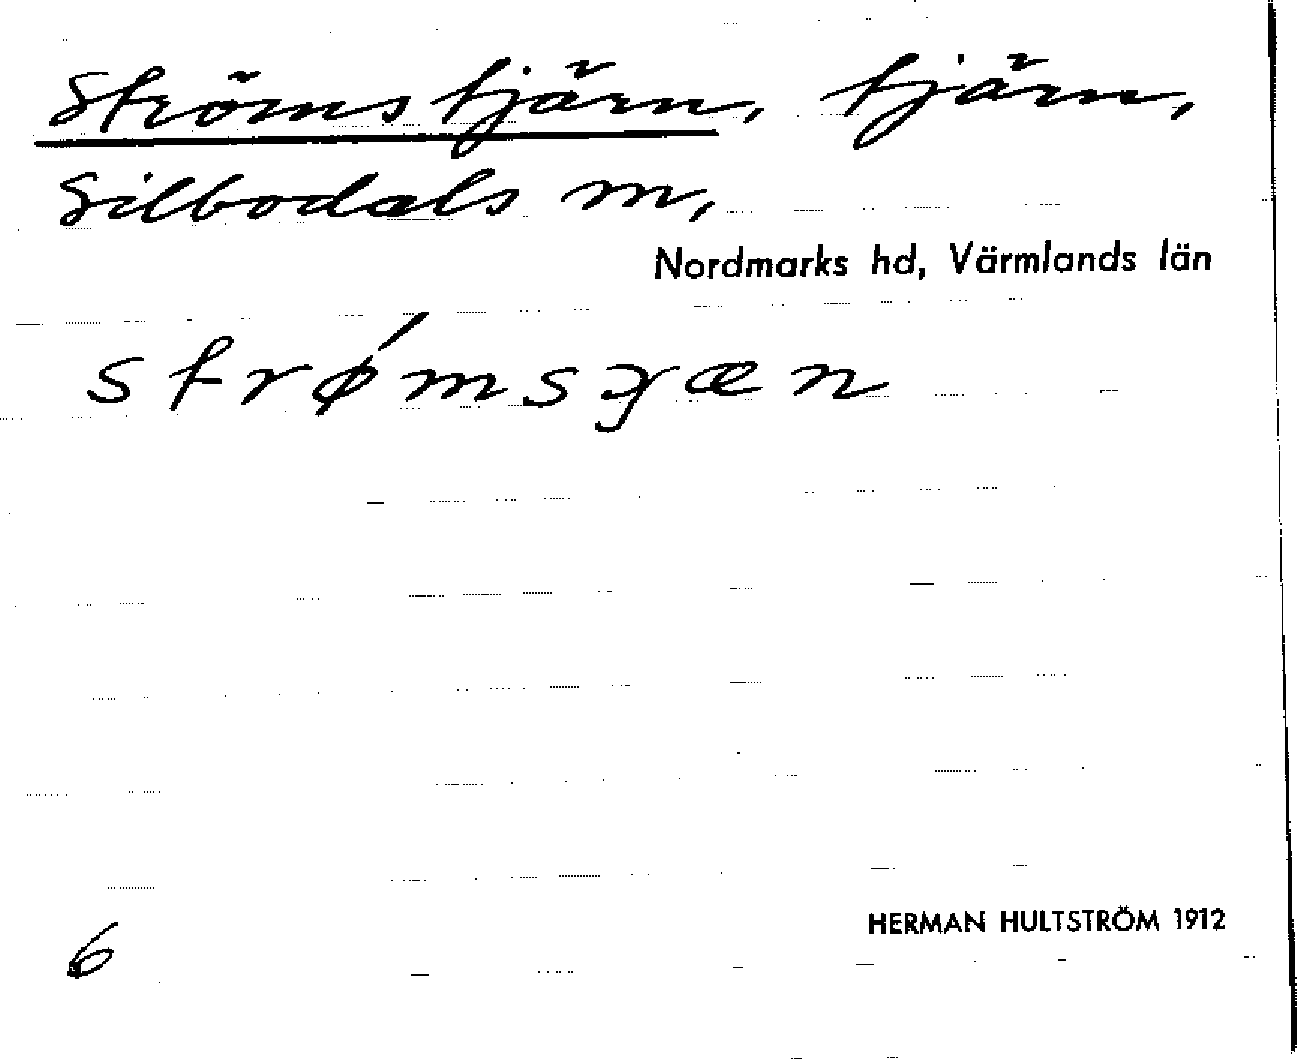 Strömstjärn, tjärn,
Silbodals m,
Nordmarks hd, Värmlands län
HERMAN HULTSTRÖM 1912
6